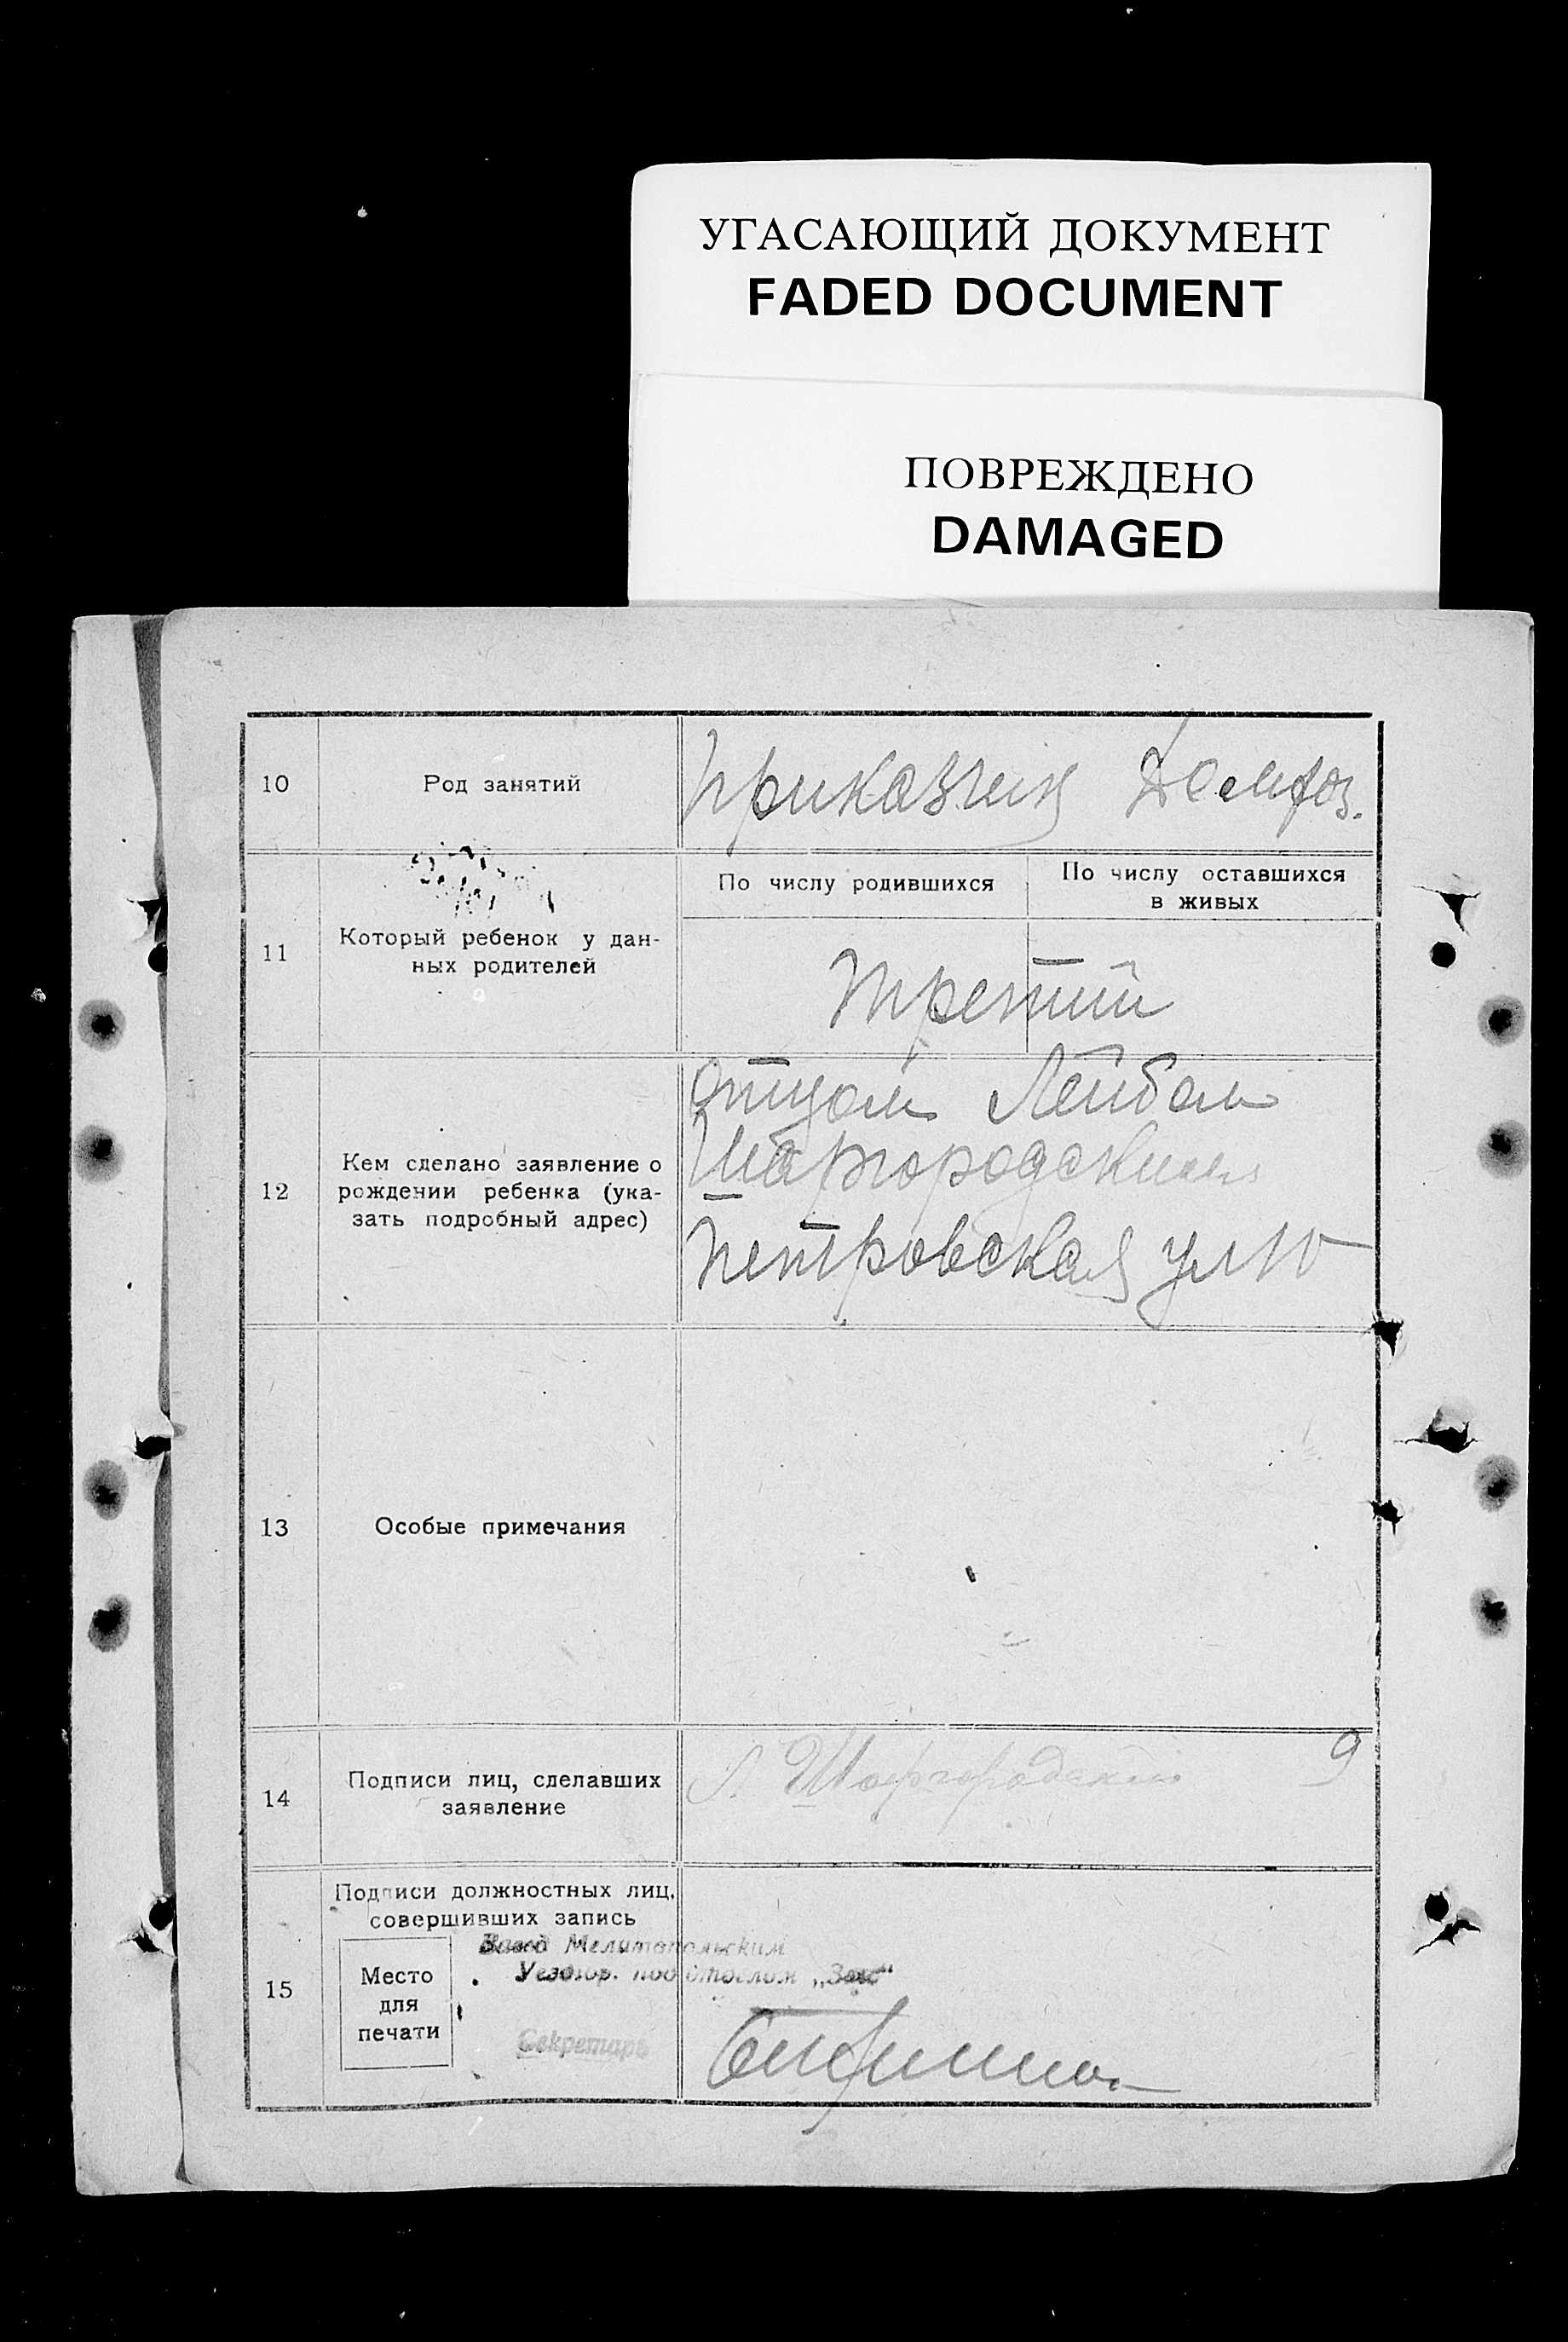 УГАСАЮЩИЙ ДОКУМЕНТ
FADED DOCUMENT
ПОВРЕЖДЕНО
DAMAGED
10 Род занятий приказчик Домхоз.
По числу родившихся По числу оставшихся
в живых
11 Который ребенок у дан-
ных родителей
третий
отцом Лейбом
Шаргородским
12 Кем сделано заявление о
рождении ребенка (ука-
зать подробный адрес)
Петровская ул 10
13 Особые примечания
14 Подписи лиц, сделавших
заявление
Л. Шаргородский 9
Подписи должностных лиц,
совершивших запись
Завед Мелитопольским
Уездгор. подотделом „Загс“
15 Место
для
печати
Секретарь